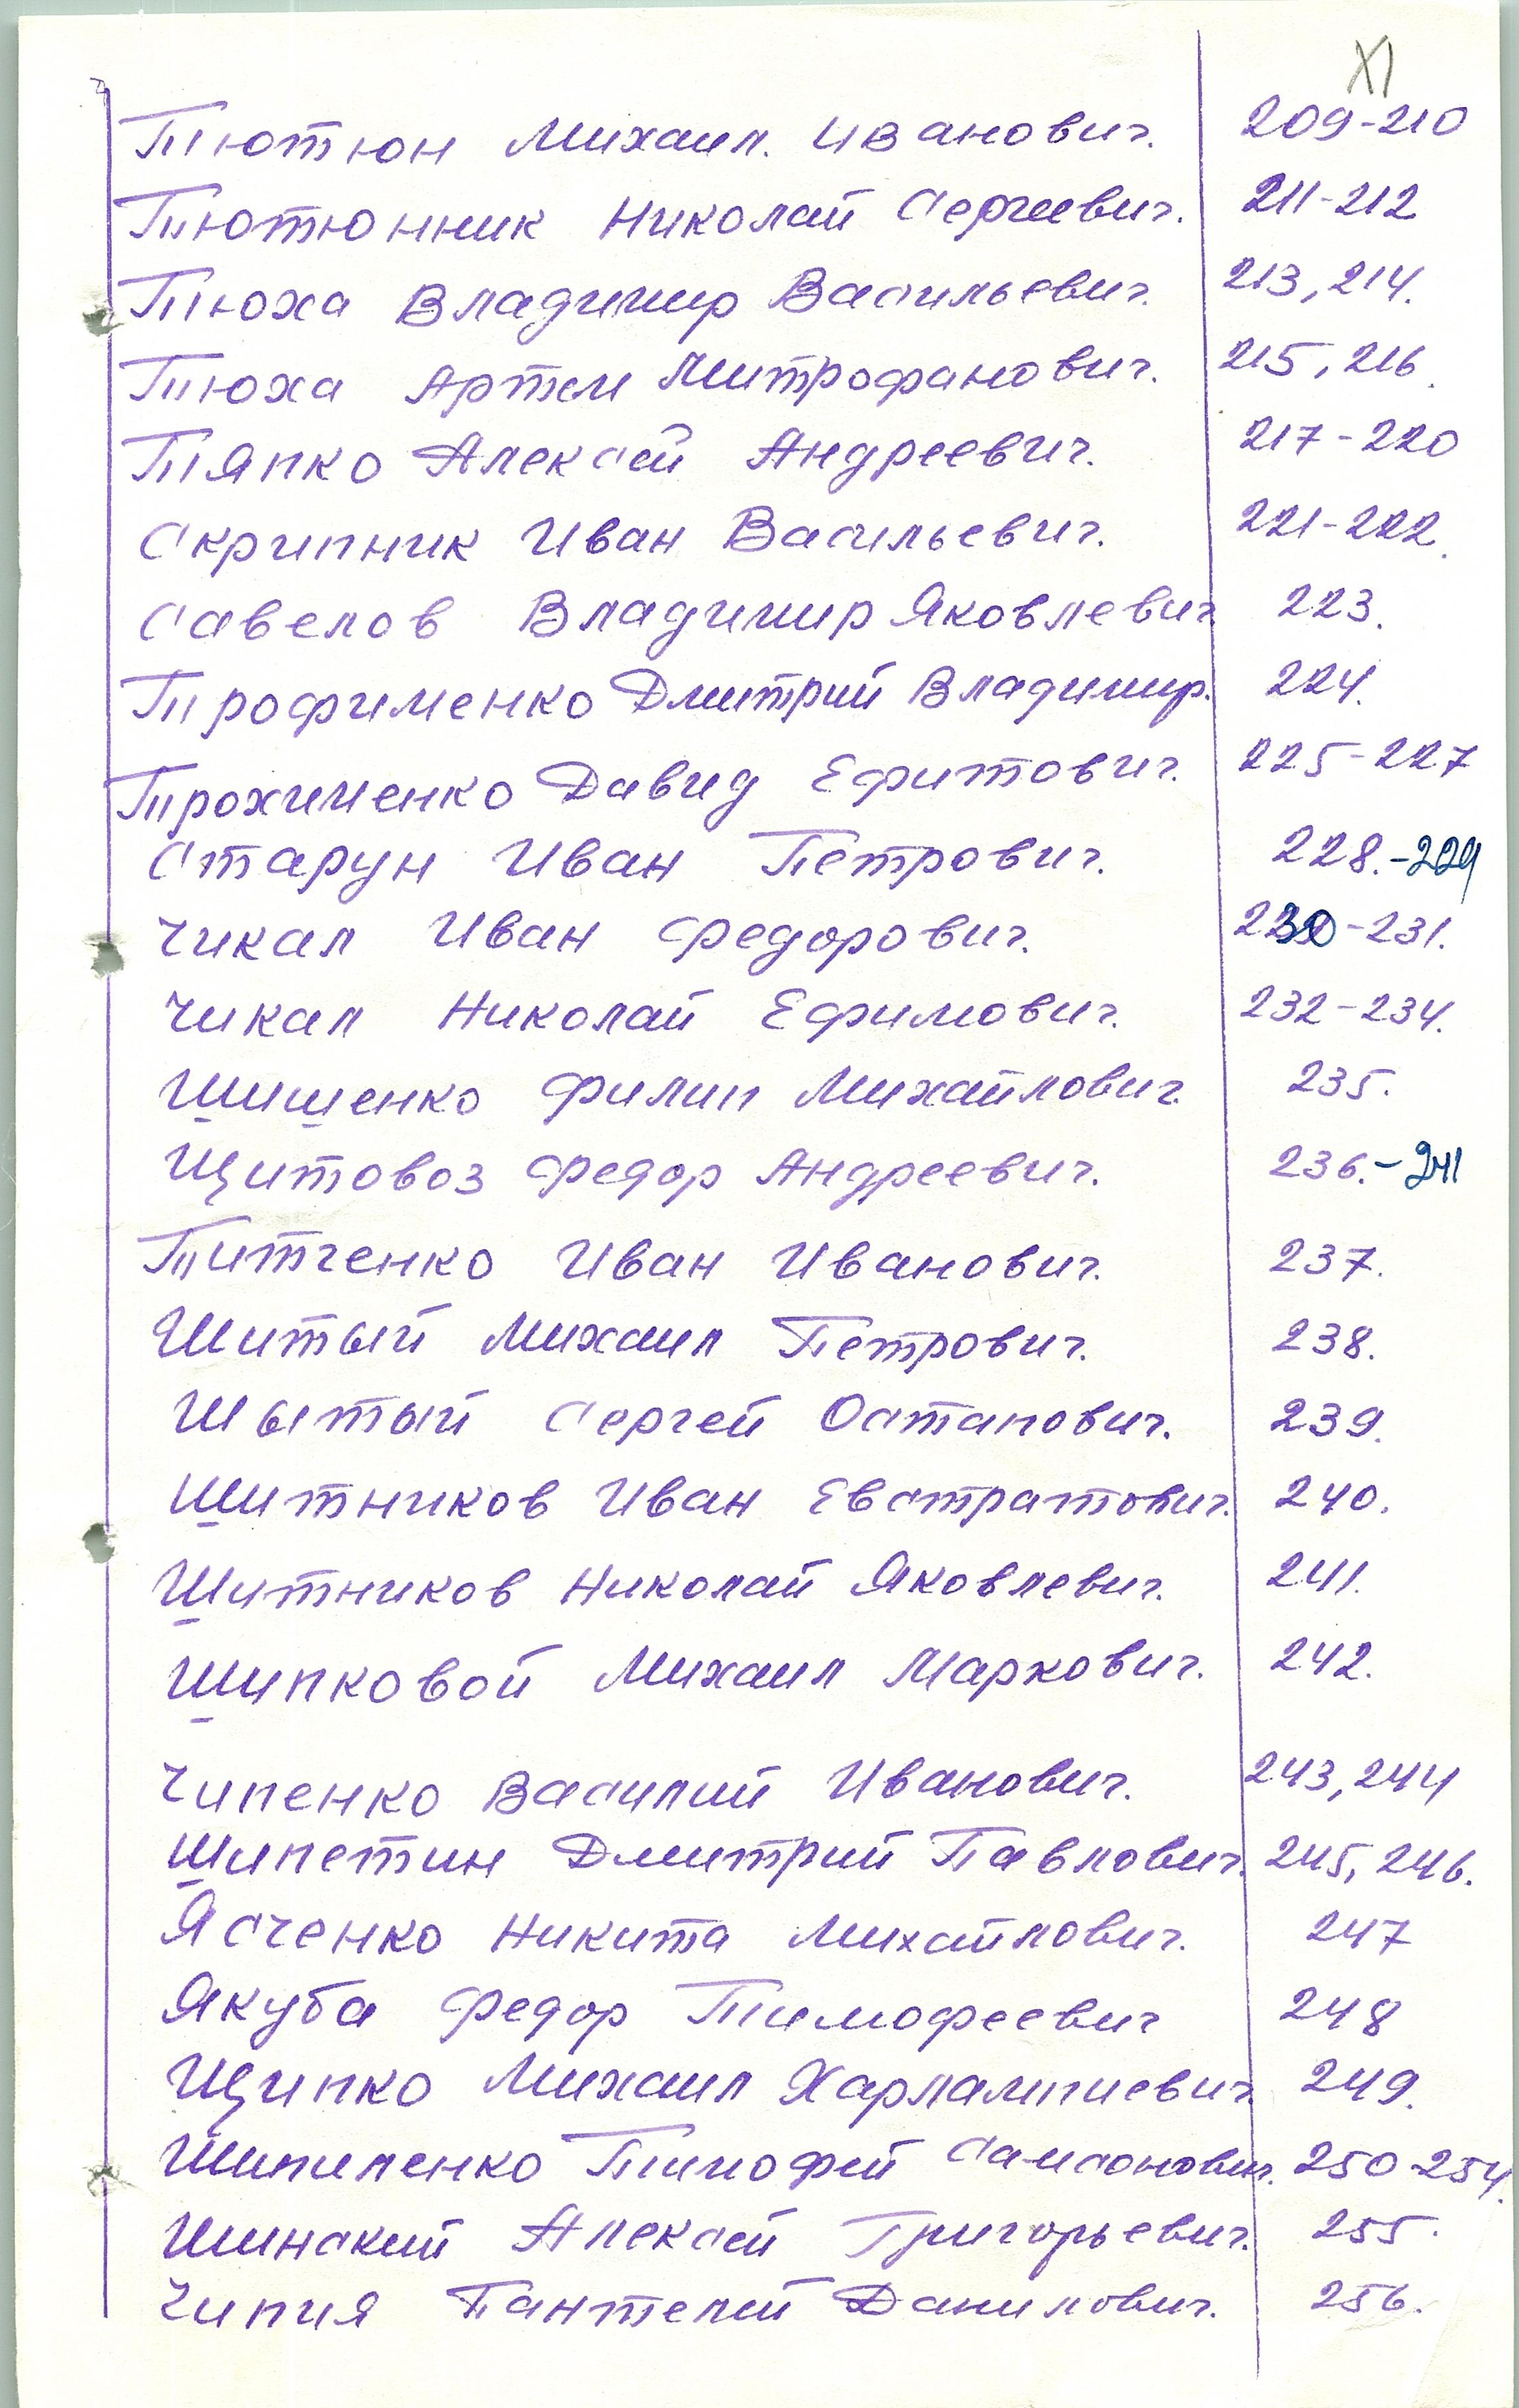 XI
Тютюн Михаил. Иванович. 209-210
Тютюнник Николай Сергеевич. 211-212
Тюха Владимир Васильевич. 213, 214.
Тюха Артем Митрофанович. 215, 216.
Тяпко Алексей Андреевич. 217-220
Скрипник Иван Васильевич. 221-222.
Савелов Владимир Яковлевич 223.
Трофименко Дмитрий Владимир. 224.
Трохименко Давид Ефитович. 225-227
Старун Иван Петрович. 228.-229
Чикал Иван Федорович. 230-231.
Чикал Николай Ефимович. 232-234.
Шишенко Филип Михайлович. 235.
Щитовоз Федор Андреевич. 236.-241
Титченко Иван Иванович. 237.
Шитый Михаил Петрович. 238.
Шытый Сергей Остапович. 239.
Шитников Иван Евстратович. 240.
Шитников Николай Яковлевич. 241.
Шипковой Михаил Маркович. 242.
Чипенко Василий Иванович. 243, 244
Шипетин Дмитрий Павлович. 245, 246.
Ясченко Никита Михайлович. 247
Якуба Федор Тимофеевич 248
Щипко Михаил Харлампиевич 249.
Шипиленко Тимофей Самсонович. 250-254.
Шинский Алексей Григорьевич. 255.
Чипия Пантелей Данилович. 256.